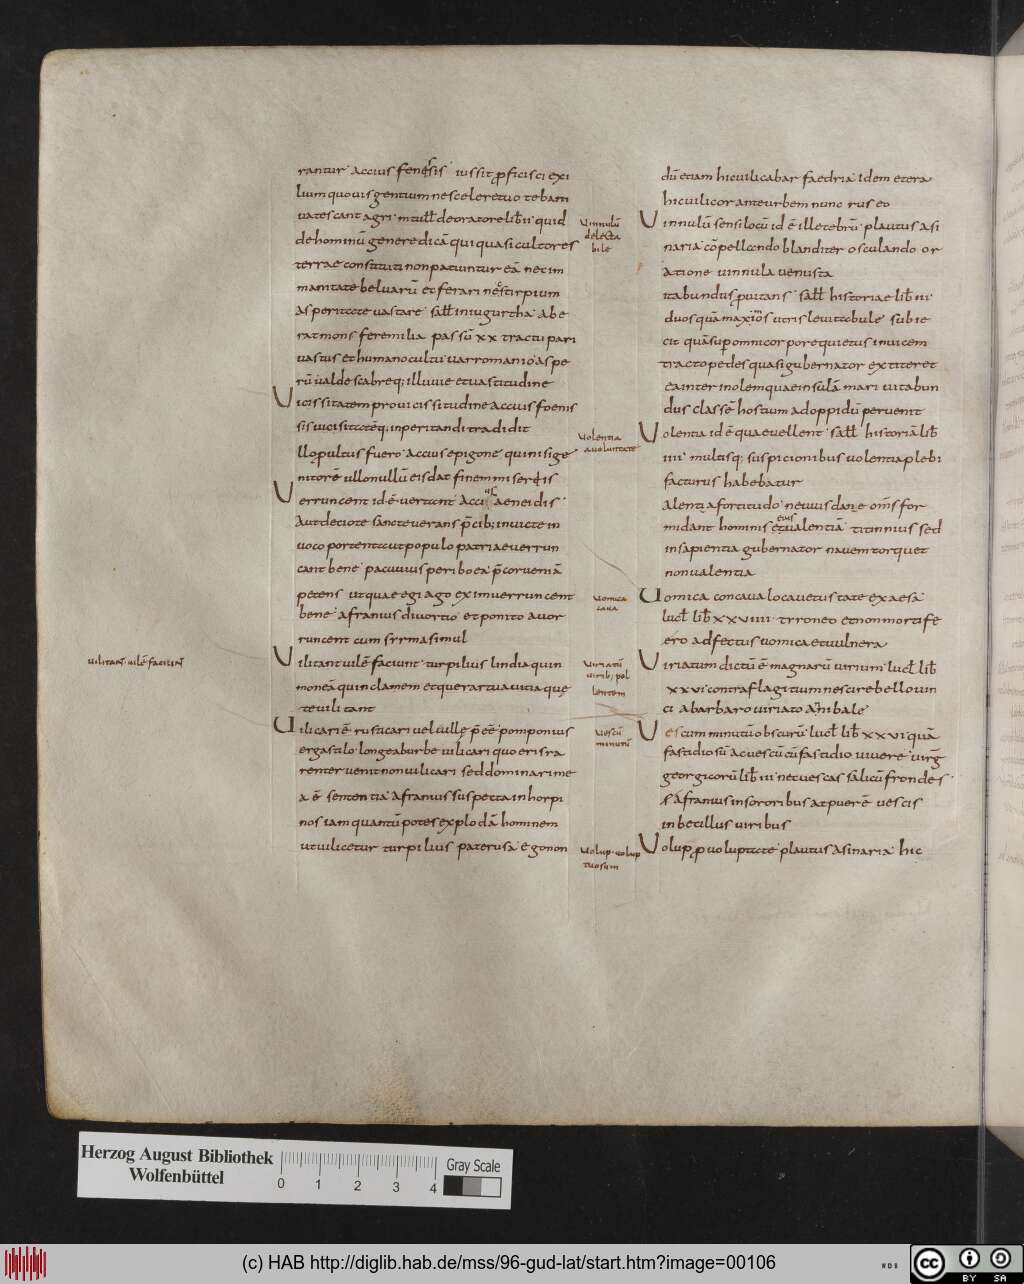 rantur accius fenensis iussit proficisci exi
lium quovis gentium ne scelere tuo tebani
vates cant agri mtull deoratore lib ii quid
de hominū genere dicā qui quasi cultores
terrae constituti non patiuntur eā nec in
manitate beluarū efferari nec stirpium
asperitate vastare sall iniugurtha abe
rat mons fere milia passū xx tractu pari
vastus et humano cultu varro manio aspe
rū valde scabreq; illuvie et vastitudine
Vicissitatem pro vicissitudine accius foenis
sis vicissitatēq; inperitandi tradidit
llo pultus fuero accius epigone qui nisi ge
nitorē ullo nullū eis dat finem miseriis
Verruncent id ē vertant acci aeneidis
aut deciote sancte verans p̄cib; invicte in
voco portenta ut populo patriae verrun
cant bene pacuvius periboea p̄cor veniā
petens ut quae egi ago exim verruncent
bene afranius divortio et ponito avor
runcent cum firma simul
Vilitant vilē faciunt turpilius lindia quin
moneā quin clamem et querar tua vitia quę
te vilitant
Vilicari ē rusticari vel villę p̄eē pomponius
ergastilo longe ab urbe vilicari quo erisra
renter venit non vilicari sed dominari me
a ē sententia afranius suspecta in horpi
nos iam quantū potes explodā hominem
ut vilicetur turpilius paterusa ego non
vilitant vilē faciunt
vinnulū
delecta
bile
volentia
a voluntate
vomica
cava
viriatū
virib; pol
lentem
vescū
minutū
volup volup
tuosum
dū etiam hic vilicabar faedria idem etera
hic vilicor ante urbem nunc rus eo
Vinnulū sensi locū id ē illecebrū plautus asi
naria cōpellando blanditer osculando or
atione vinnula venusta
itabundus pvitans sall historiae lib iii
duos quā maximos utris levi tabule subie
cit quā super omni corpore quietus invicem
tracto pedes quasi gubernator extiteret
ea inter inolem quae insulā mari vitabun
dus classē hostium ad oppidū pervenit
Volentia id ē quae vellent sall historiā lib
iiii multisq; suspicionibus volentia plebi
facturus habebatur
alentia fortitudo nevius danę om̄s for
midant hominis eius valentiā titinnius sed
insapientia gubernator navem torquet
non valentia
Vomica concava loca vetustate exaesa
lucl lib xxviiii troneo et non mortife
ero adfectus vomica et vulnera
Viriatum dictū ē magnarū virium lucl lib
xxvi contra flagitium nescire bello vin
ci a barbaro viriato annibale
Vescum minutū obscurū lucl lib xxvi quā
fastidiosū ac vescū cū fastidio vivere virg
georgicorū lib iii nec vescas salicū frondes
s afranius in sororibus at puer ē vescis
inbecillus viribus
Volup p voluptate plautus asinaria hic
Herzog August Bibliothek
Wolfenbüttel
0 1 2 3 4
Gray Scale
(c) HAB http://diglib.hab.de/mss/96-gud-lat/start.htm?image=00106
WDB
cc BY SA